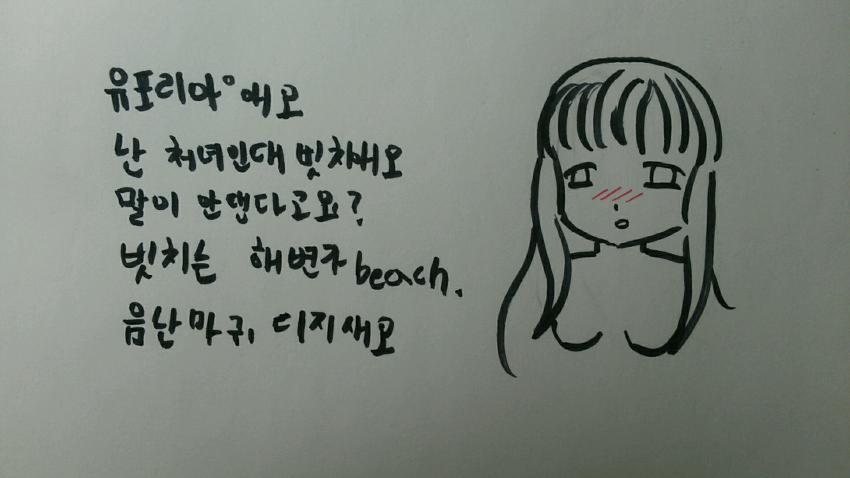 유포리아°에고
난 처녀인대 빗치에요
말이 안댄다고요?
빗치는 해변가 beach.
음난마귀, 디지새요